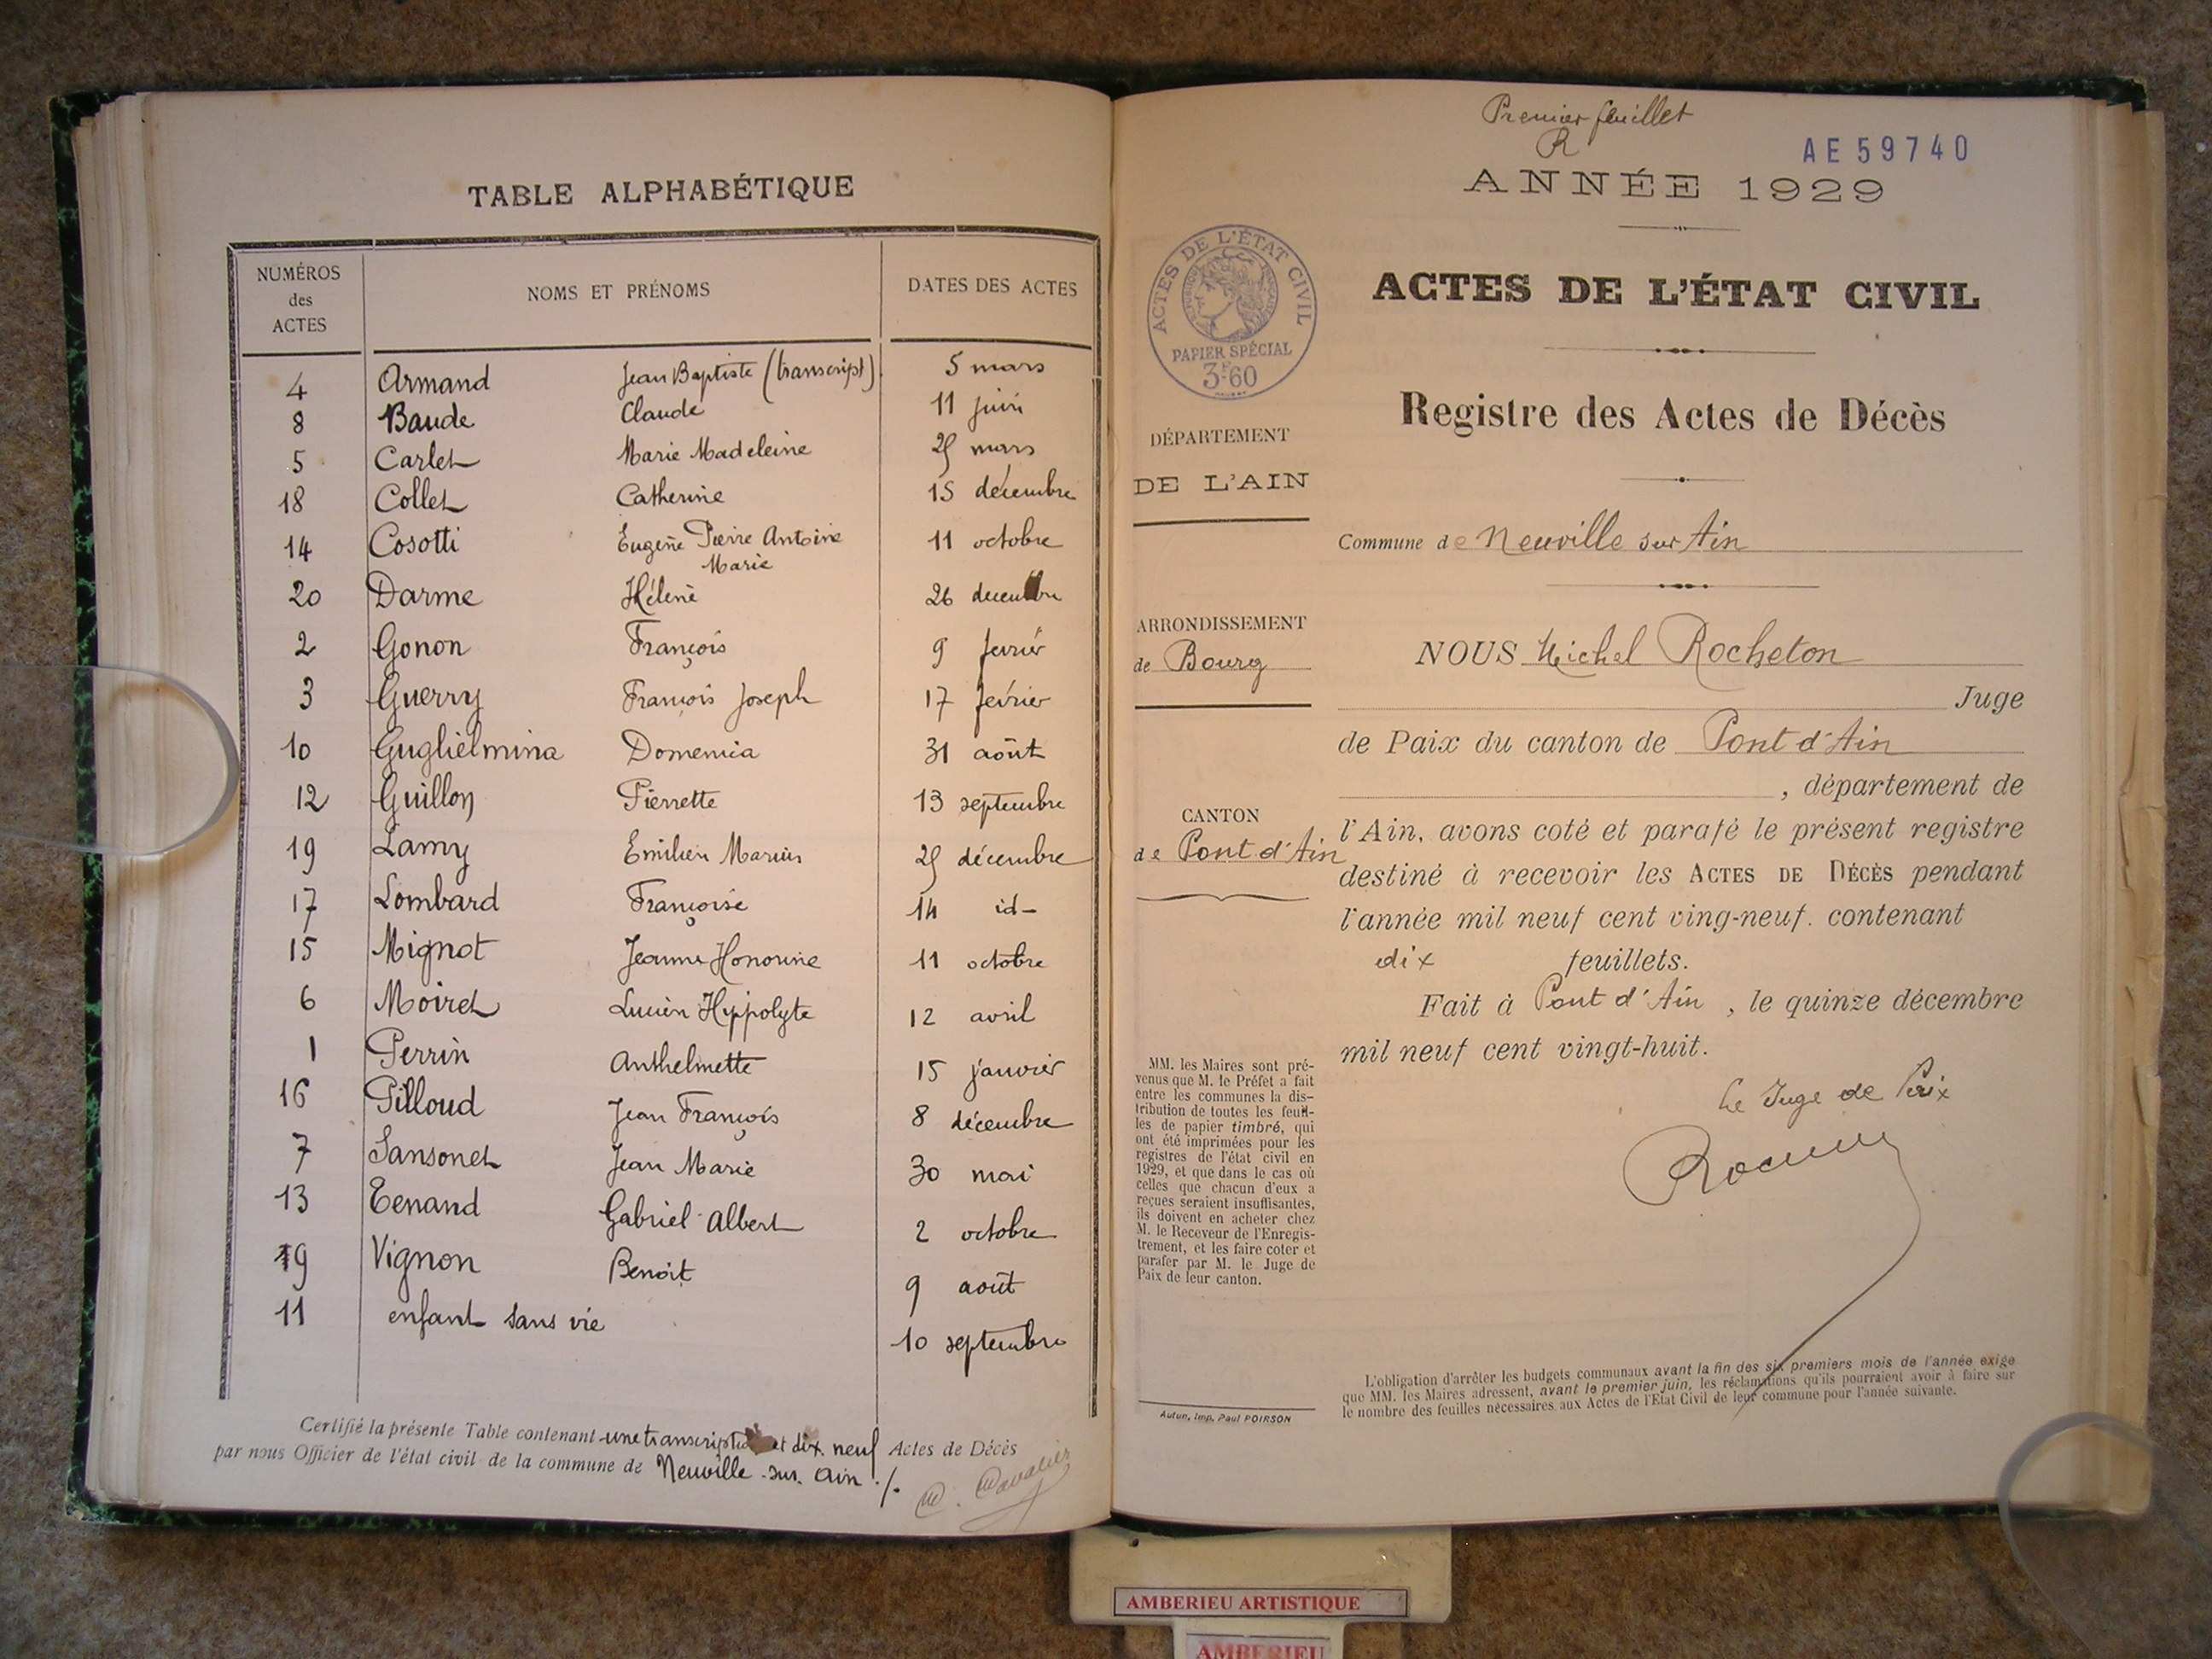 TABLE ALPHABÉTIQUE
NUMÉROS des ACTES NOMS ET PRÉNOMS DATES DES ACTES
4 Armand Jean Baptiste (transcript) 5 mars
8 Baude Claude 11 juin
5 Carlet Marie Madeleine 25 mars
18 Collet Catherine 15 décembre
14 Cosotti Eugène Pierre Antoine 11 octobre
Marie
20 Darme Hélène 26 decembre
2 Gonon François 9 fevrier
3 Guerry François Joseph 17 fevrier
10 Guglielmina Domenica 31 août
12 Guillon Pierrette 13 septembre
19 Lamy Emilien Marius 25 décembre
17 Lombard Françoise 14 id-
15 Mignot Jeanne Honorine 11 octobre
6 Moiret Lucien Hippolyte 12 avril
1 Perrin Anthelmette 15 janvier
16 Pilloud Jean François 8 décembre
7 Sansonet Jean Marie 30 mai
13 Tenand Gabriel Albert 2 octobre
9 Vignon Benoit 9 août
11 enfant sans vie 10 septembre
Certifié la présente Table contenant une transcription et dix neuf Actes de Décès
par nous Officier de l'état civil de la commune de Neuville-sur-Ain ./.
Cavalier
Premier feuillet
R
AE59740
ANNÉE 1929
ACTES DE L'ÉTAT CIVIL
PAPIER SPÉCIAL
3F60
ACTES DE L'ÉTAT CIVIL
Registre des Actes de Décès
DÉPARTEMENT
DE L'AIN
Commune de Neuville sur Ain
ARRONDISSEMENT
de Bourg
CANTON
de Pont-d'Ain
NOUS Michel Rocheton
Juge
de Paix du canton de Pont d'Ain
, département de
l'Ain, avons coté et parafé le présent registre
destiné à recevoir les ACTES DE DÉCÈS pendant
l'année mil neuf cent ving-neuf. contenant
dix feuillets.
Fait à Pont d'Ain, le quinze décembre
mil neuf cent vingt-huit.
Le Juge de Paix
MM. les Maires sont pré-
venus que M. le Préfet a fait
entre les communes la dis-
tribution de toutes les feuil-
les de papier timbré, qui
ont été imprimées pour les
registres de l'état civil en
1929, et que dans le cas où
celles que chacun d'eux a
reçues seraient insuffisantes,
ils doivent en acheter chez
M. le Receveur de l'Enregis-
trement, et les faire coter et
parafer par M. le Juge de
Paix de leur canton.
Autun, Imp. Paul POIRSON
L'obligation d'arrêter les budgets communaux avant la fin des six premiers mois de l'année exige
que MM. les Maires adressent, avant le premier juin, les réclamations qu'ils pourraient avoir à faire sur
le nombre des feuilles nécessaires aux Actes de l'Etat Civil de leur commune pour l'année suivante.
AMBERIEU ARTISTIQUE
AMBERIEU